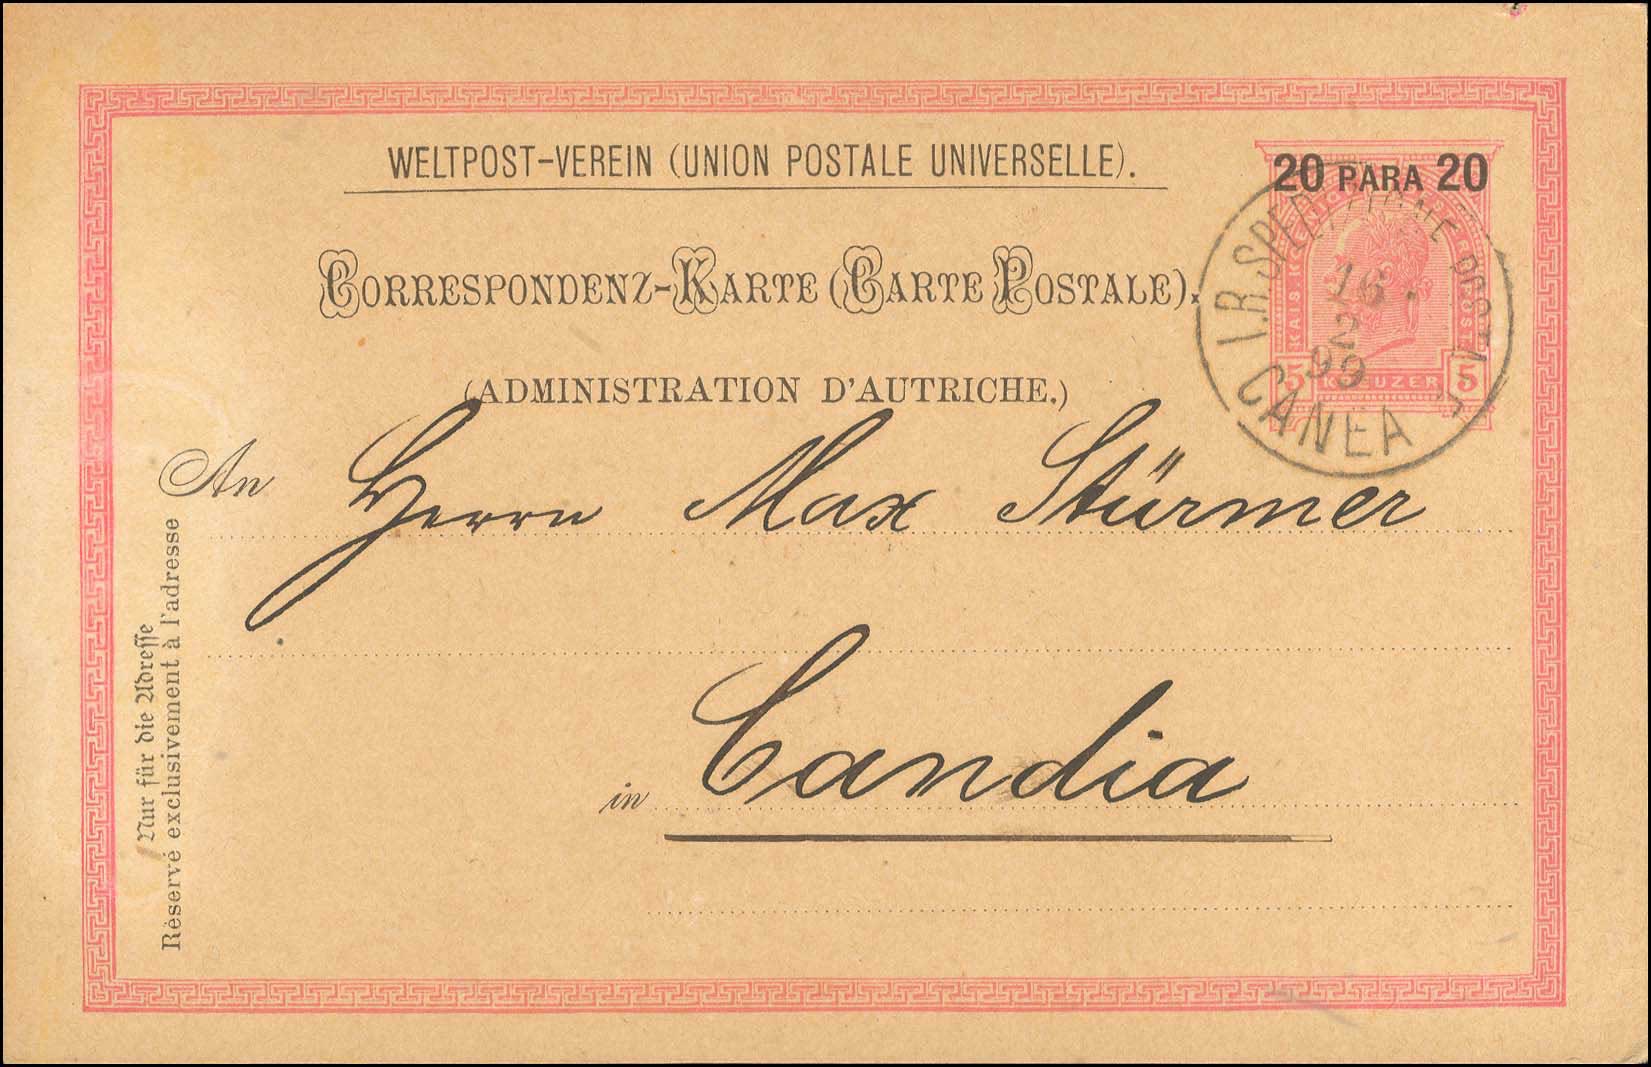 WELTPOST-VEREIN (UNION POSTALE UNIVERSELLE).
20 PARA 20
CORRESPONDENZ-KARTE (CARTE POSTALE).
KAIS. KOENIGL. OESTERR. POST
5 KREUZER 5
I.R. SPEDIZIONE POSTALE
16
2
99
CANEA
(ADMINISTRATION D'AUTRICHE.)
An Herrn Max Stürmer
in Candia
Nur für die Adresse
Réservé exclusivement à l'adresse